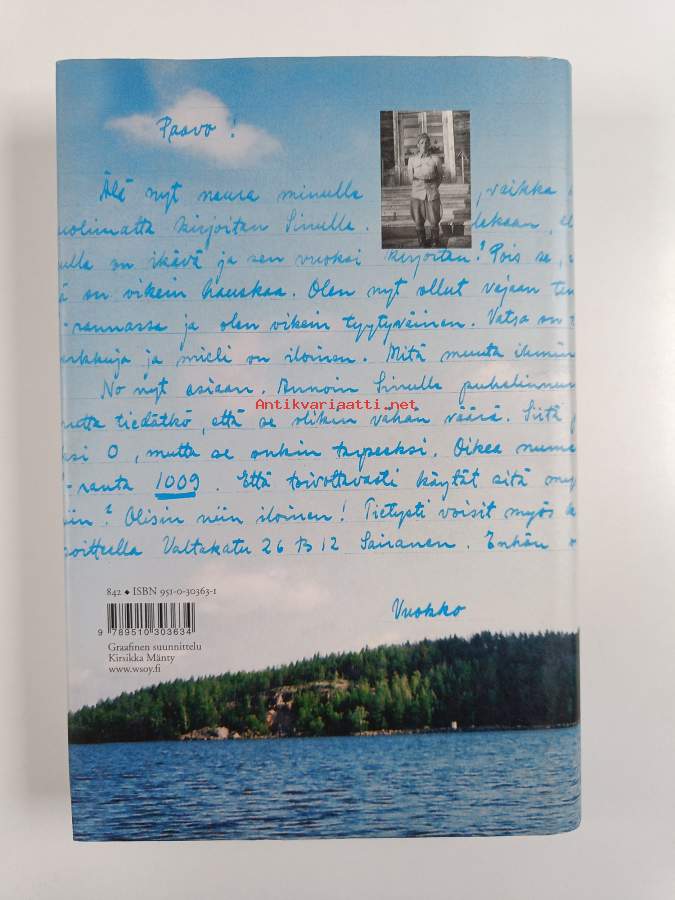 Paavo!
Älä nyt naura minulle , vaikka
uolimatta kirjoitan Sinulle. lekaan, el
ulla on ikävä ja sen vuoksi kirjoitan! Pois se,
ä on oikein hauskaa. Olen nyt ollut vajaan
-rannassa ja olen oikein tyytyväinen. Vatsa on
arkkuja ja mieli on iloinen. Mitä muuta ihmin
No nyt asiaan. Annoin Sinulle puhelinnum
utta tiedätkö, että se olikin vähän väärä. Siitä
ksi 0, mutta se onkin tarpeeksi. Oikea nume
-ranta 1009. Että toivottavasti käytät sitä my
iin? Olisin niin iloinen! Tietysti voisit myös
soitteella Valtakatu 26 B 12 Sairanen. Enhän
Vuokko
Antikvariaatti.net
842 ◆ ISBN 951-0-30363-1
9 789510 303634
Graafinen suunnittelu
Kirsikka Mänty
www.wsoy.fi